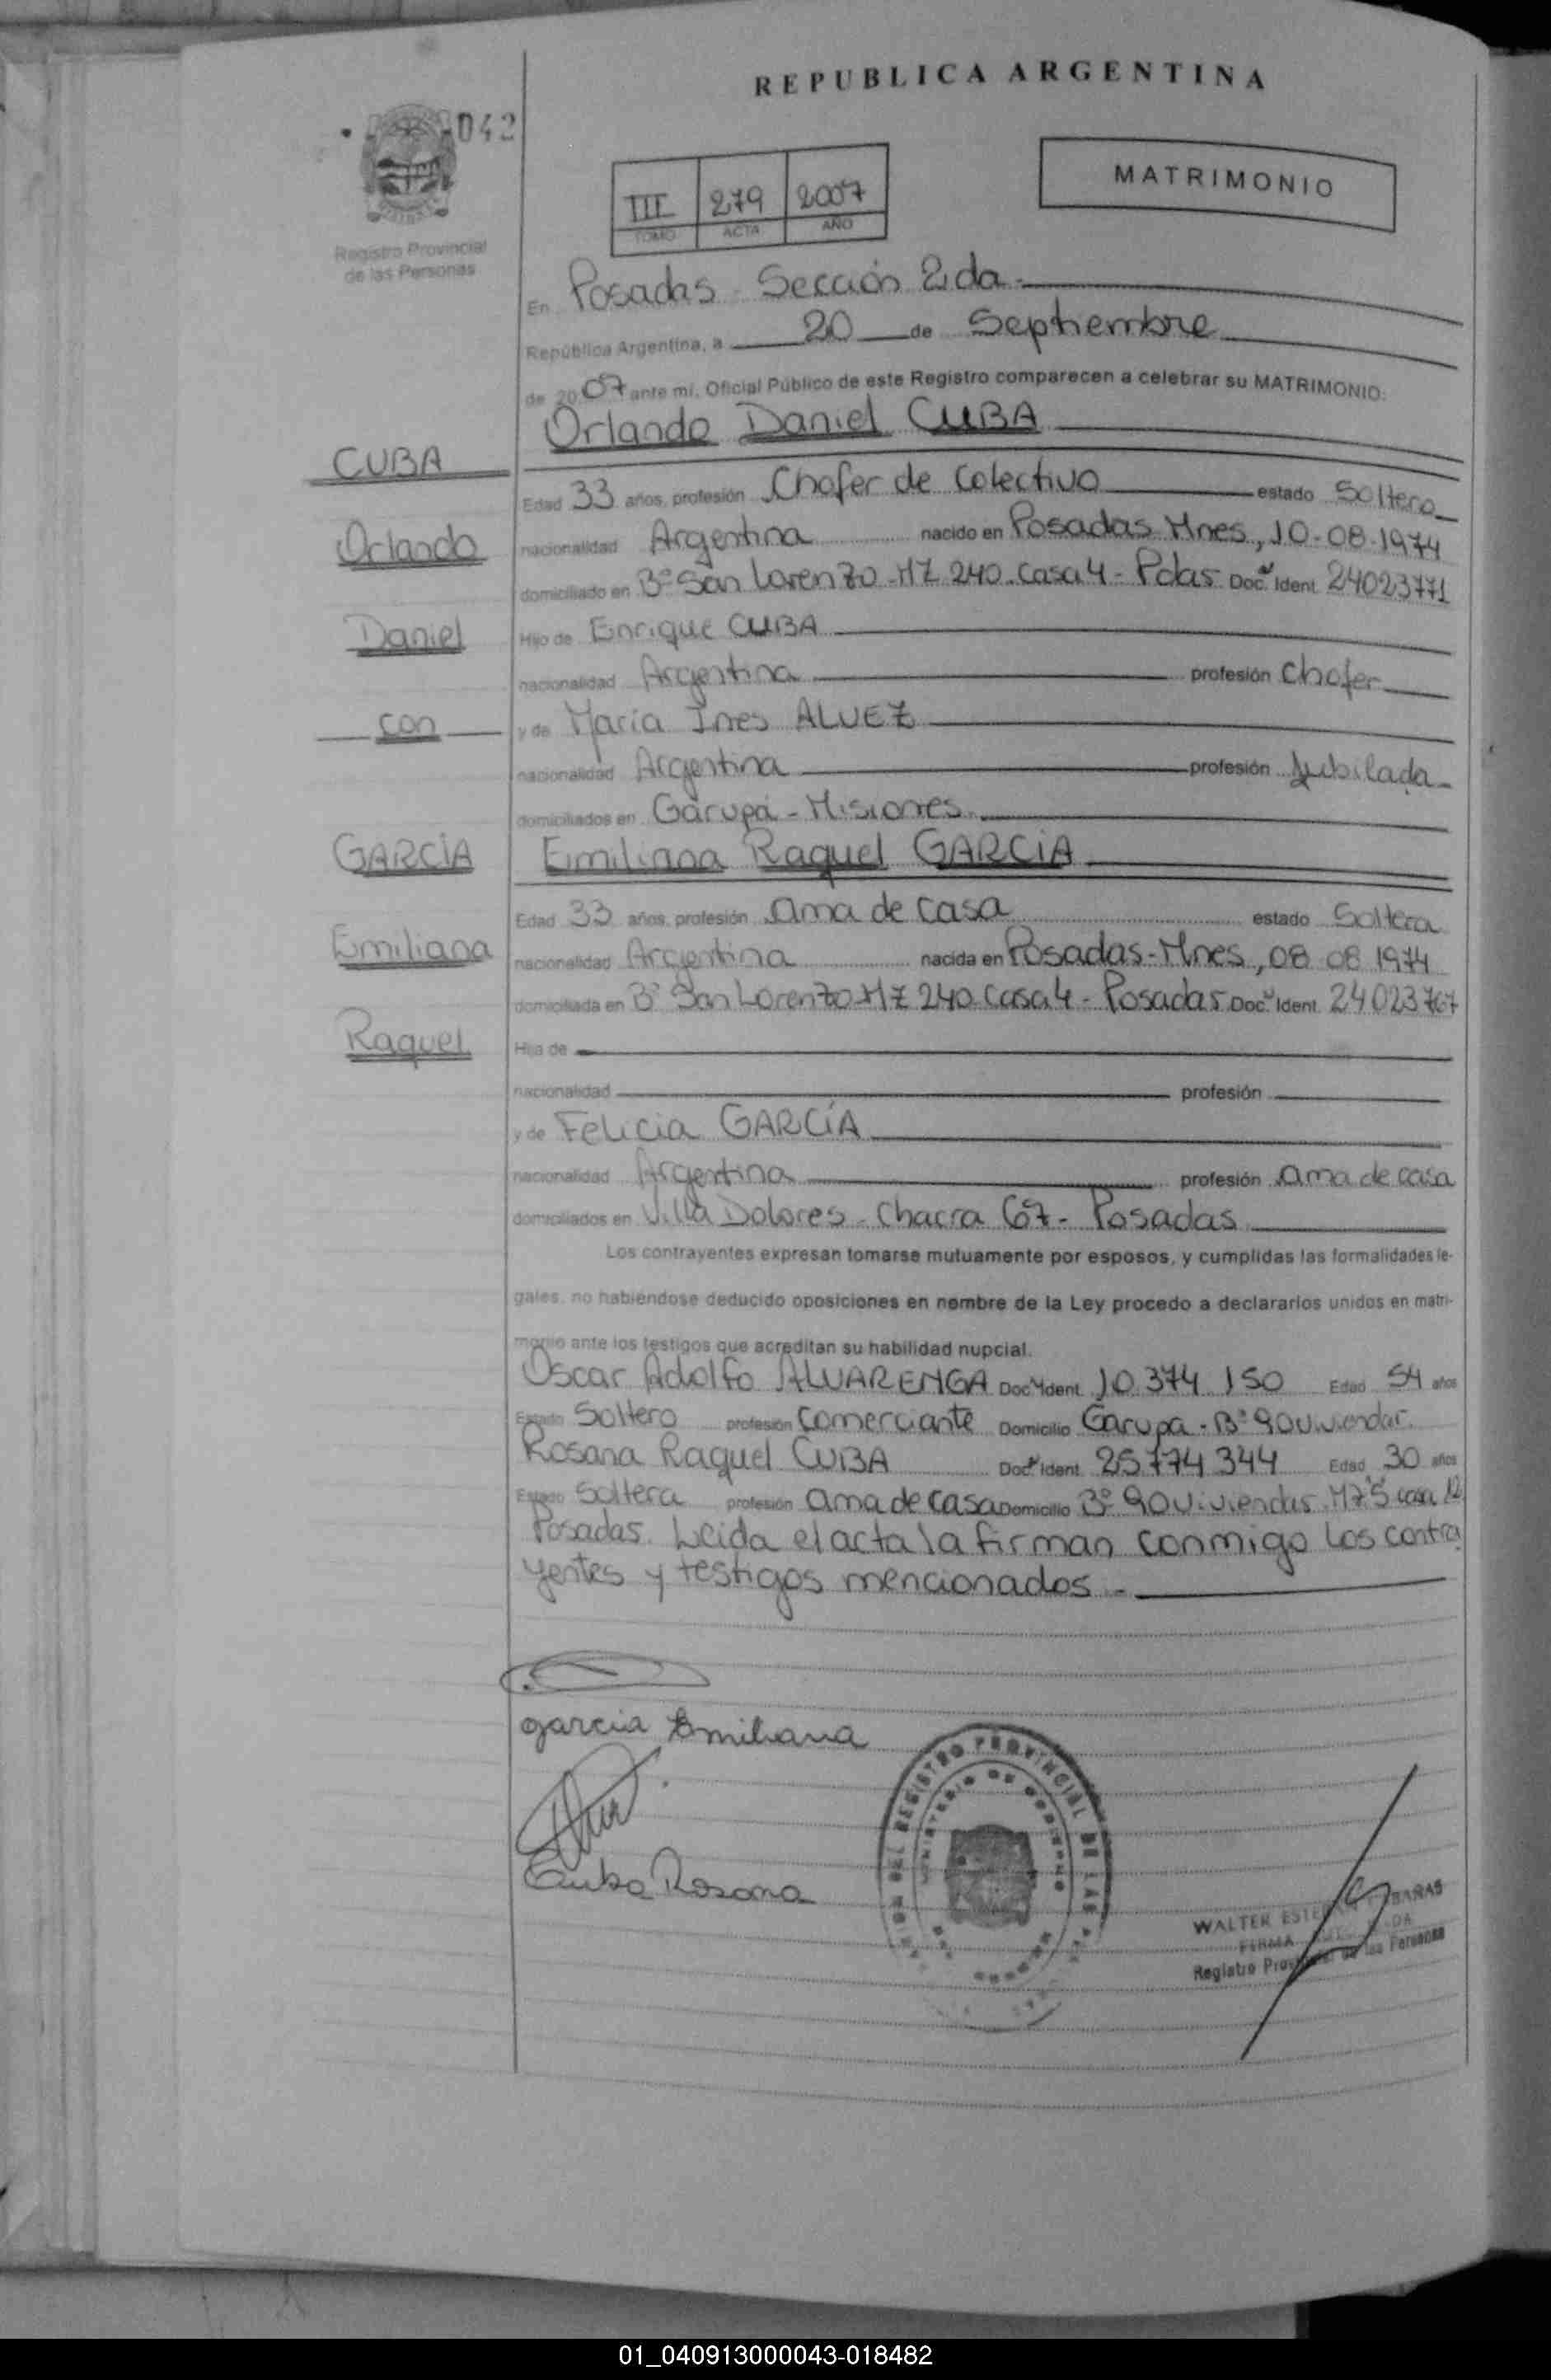 REPUBLICA ARGENTINA
042
MATRIMONIO
III 279 2007
TOMO ACTA AÑO
Registro Provincial
de las Personas
En Posadas - Sección 2da.
República Argentina, a 20 de Septiembre
de 2007 ante mi, Oficial Público de este Registro comparecen a celebrar su MATRIMONIO:
Orlando Daniel CUBA
CUBA
Edad 33 años, profesión Chofer de Colectivo estado Soltero
Orlando
nacionalidad Argentina nacido en Posadas Mnes, 10-08-1974
domiciliado en B° San Lorenzo - MZ 240 - Casa 4 - Pdas Doc. Ident. 24023771
Daniel
Hijo de Enrique CUBA
nacionalidad Argentina profesión Chofer
con
y de María Ines ALVEZ
nacionalidad Argentina profesión Jubilada
domiciliados en Garupá - Misiones.
GARCÍA
Emiliana Raquel GARCÍA
Edad 33 años, profesión ama de casa estado Soltera
Emiliana
nacionalidad Argentina nacida en Posadas - Mnes, 08 08 1974
domiciliada en B° San Lorenzo MZ 240 Casa 4 - Posadas Doc. Ident. 24023767
Raquel
Hija de
nacionalidad profesión
y de Felicia GARCÍA
nacionalidad Argentina profesión ama de casa
domiciliados en Villa Dolores - Chacra 67 - Posadas
Los contrayentes expresan tomarse mutuamente por esposos, y cumplidas las formalidades le-
gales, no habiéndose deducido oposiciones en nombre de la Ley procedo a declararlos unidos en matri-
monio ante los testigos que acreditan su habilidad nupcial.
Oscar Adolfo ALVARENGA Doc. Ident. 10.374.150 Edad 54 años
Estado Soltero profesión Comerciante Domicilio Garupa - B° 90 Viviendas.
Rosana Raquel CUBA Doc. Ident. 25.774.344 Edad 30 años
Estado Soltera profesión ama de casa Domicilio B° 90 Viviendas MZ 5 casa 12
Posadas. Leida el acta la firman conmigo los contra
yentes y testigos mencionados.-
garcia Emiliana
Cuba Rosana
REGISTRO PROVINCIAL DE LAS
MINISTERIO DE GOBIERNO
WALTER
FIRMA
Registro Provincial de las Personas
01_040913000043-018482